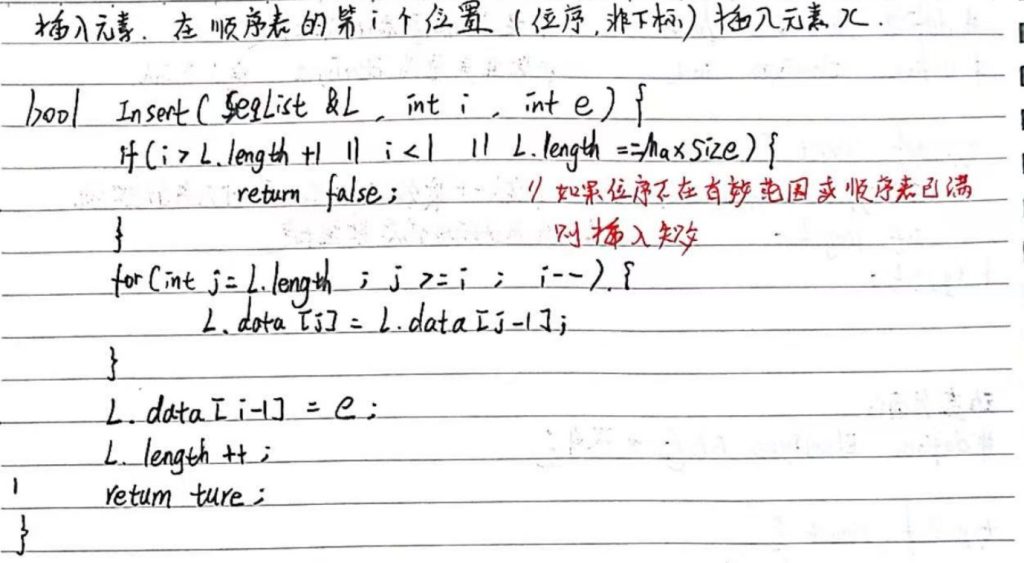 插入元素. 在顺序表的第i个位置 (位序,非下标) 插入元素x.
bool Insert( SeqList &L , int i , int e ) {
if( i > L.length +1 || i < 1 || L.length == MaxSize ) {
return false; // 如果位序不在有效范围或顺序表已满
则插入失败
}
for (int j = L.length ; j >= i ; i--) {
L. data [j] = L. data [j-1];
}
L. data [i-1] = e ;
L. length ++ ;
return ture ;
}